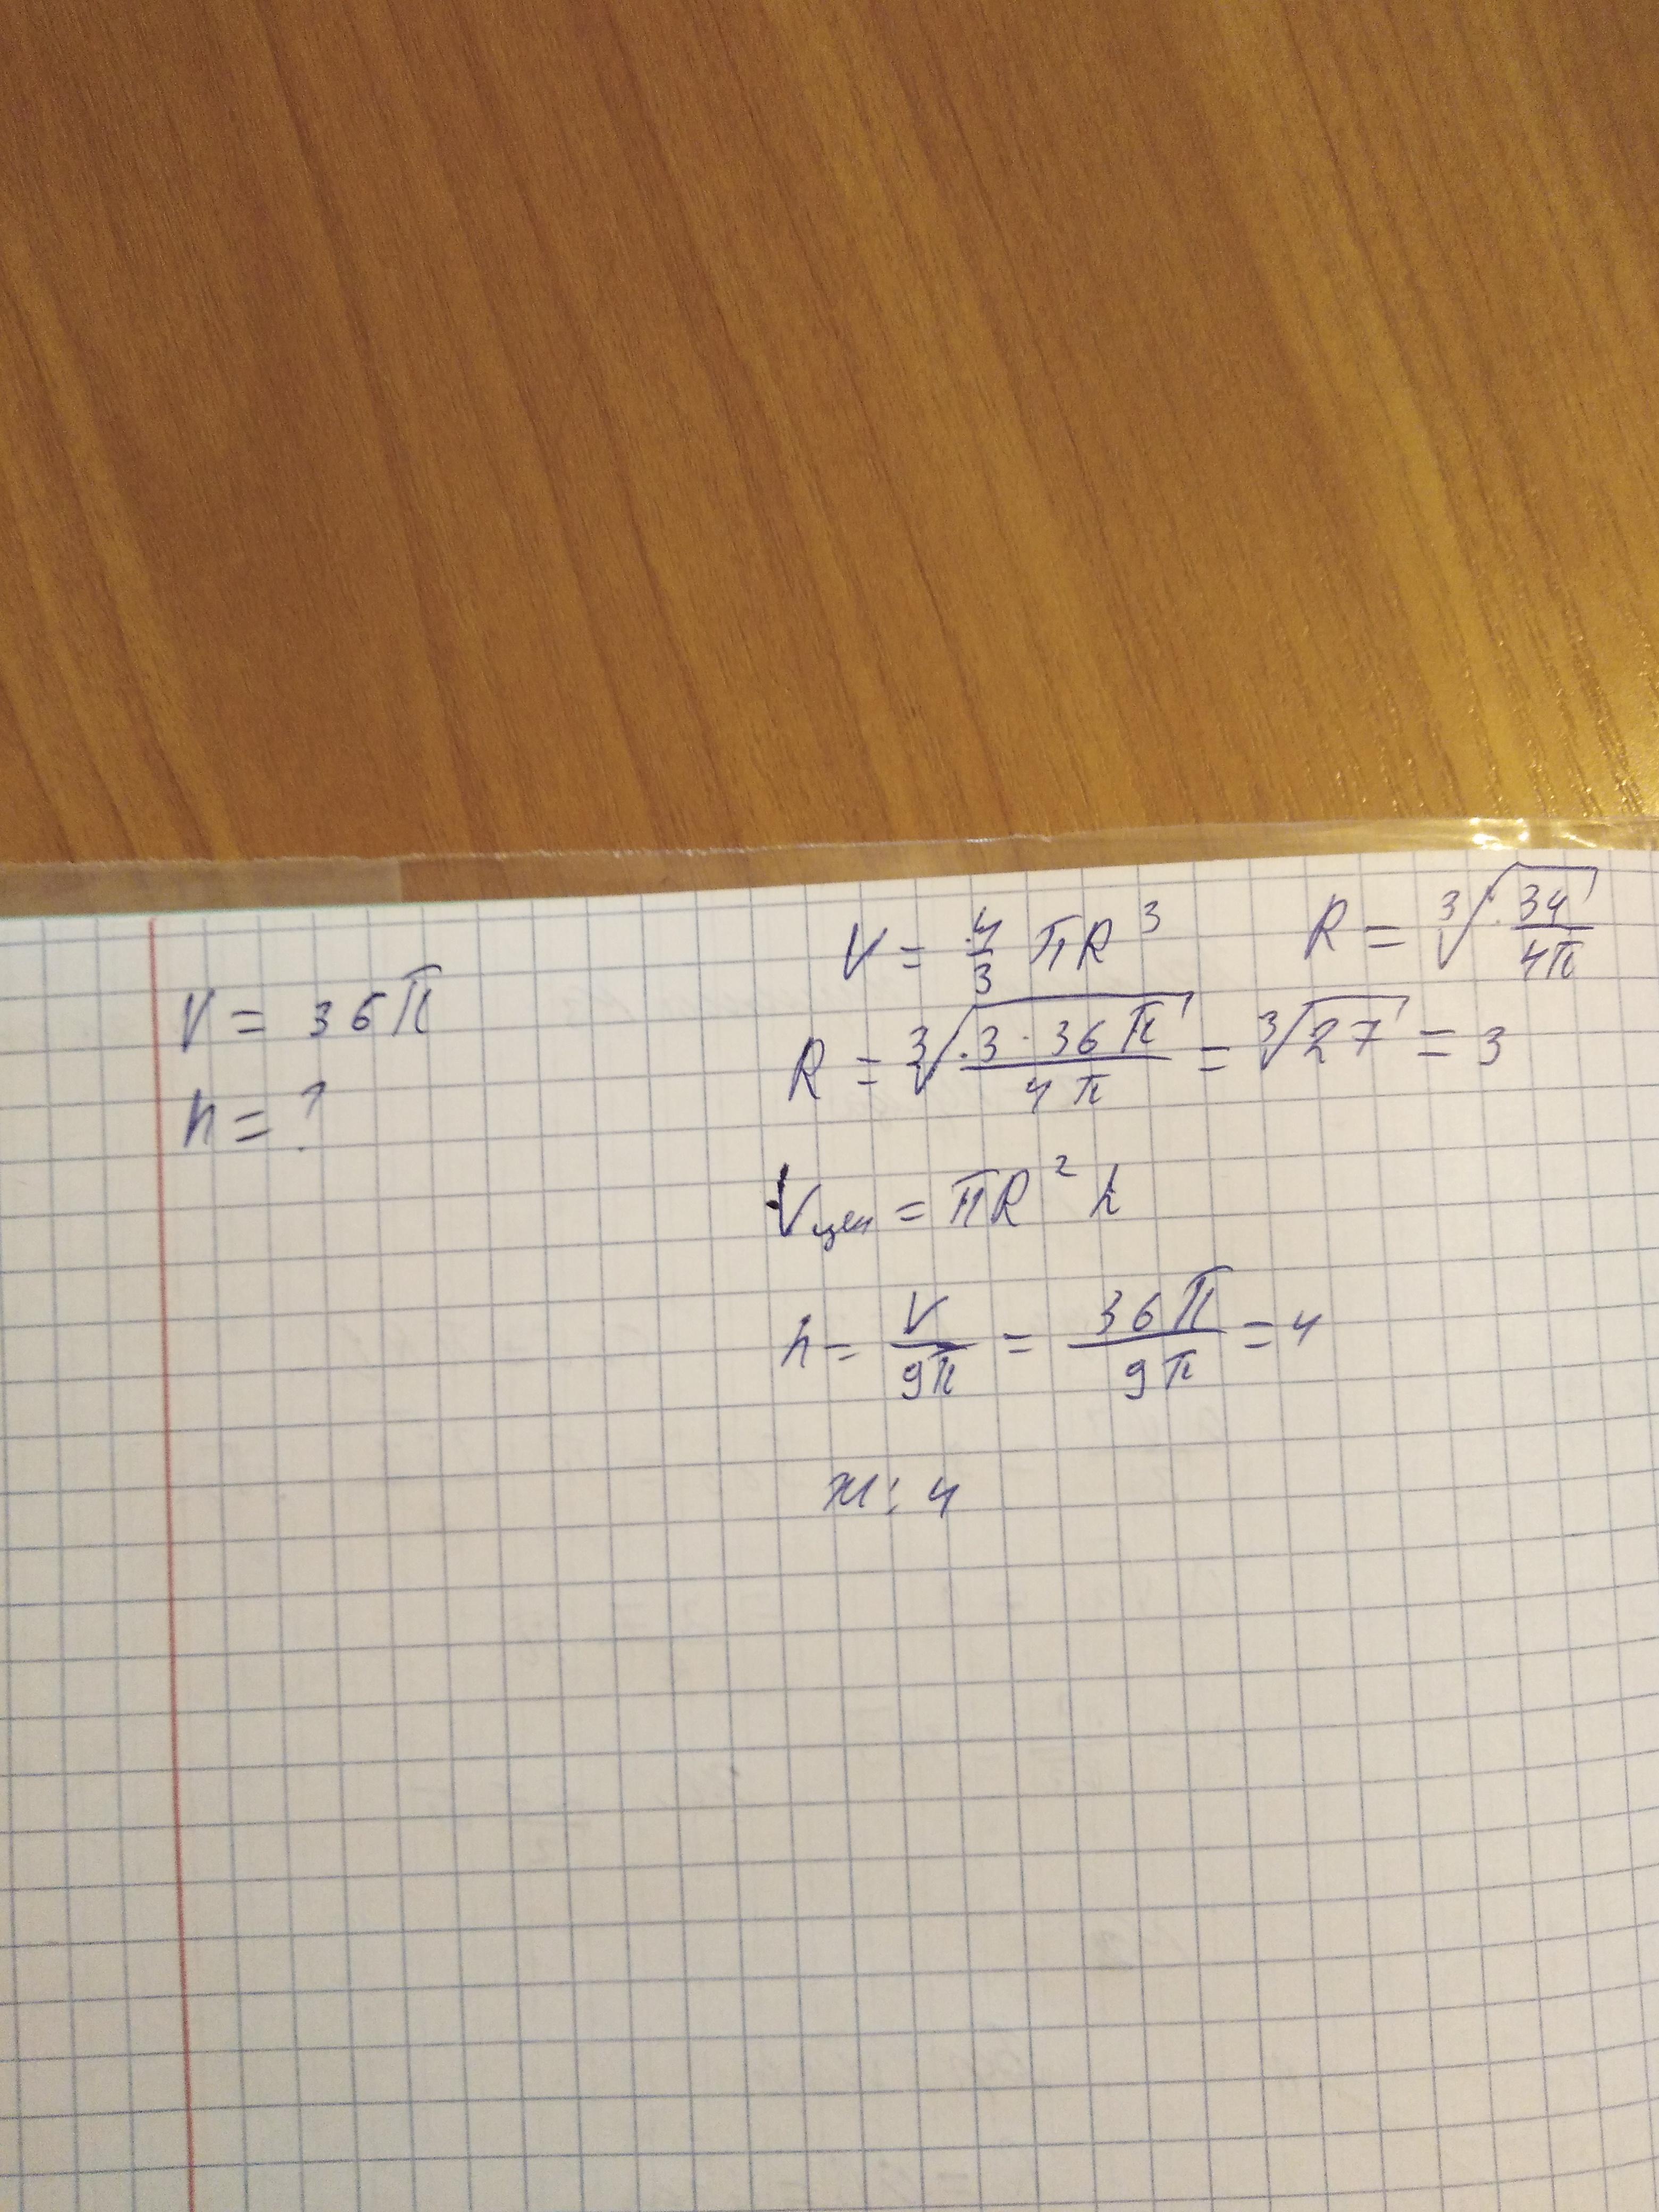 V = 36π
h = ?
V = 4/3 πR³ R = ∛(3V/4π)
R = ∛(3·36π/4π) = ∛27 = 3
Vцел = πR²h
h = V/9π = 36π/9π = 4
ж: 4